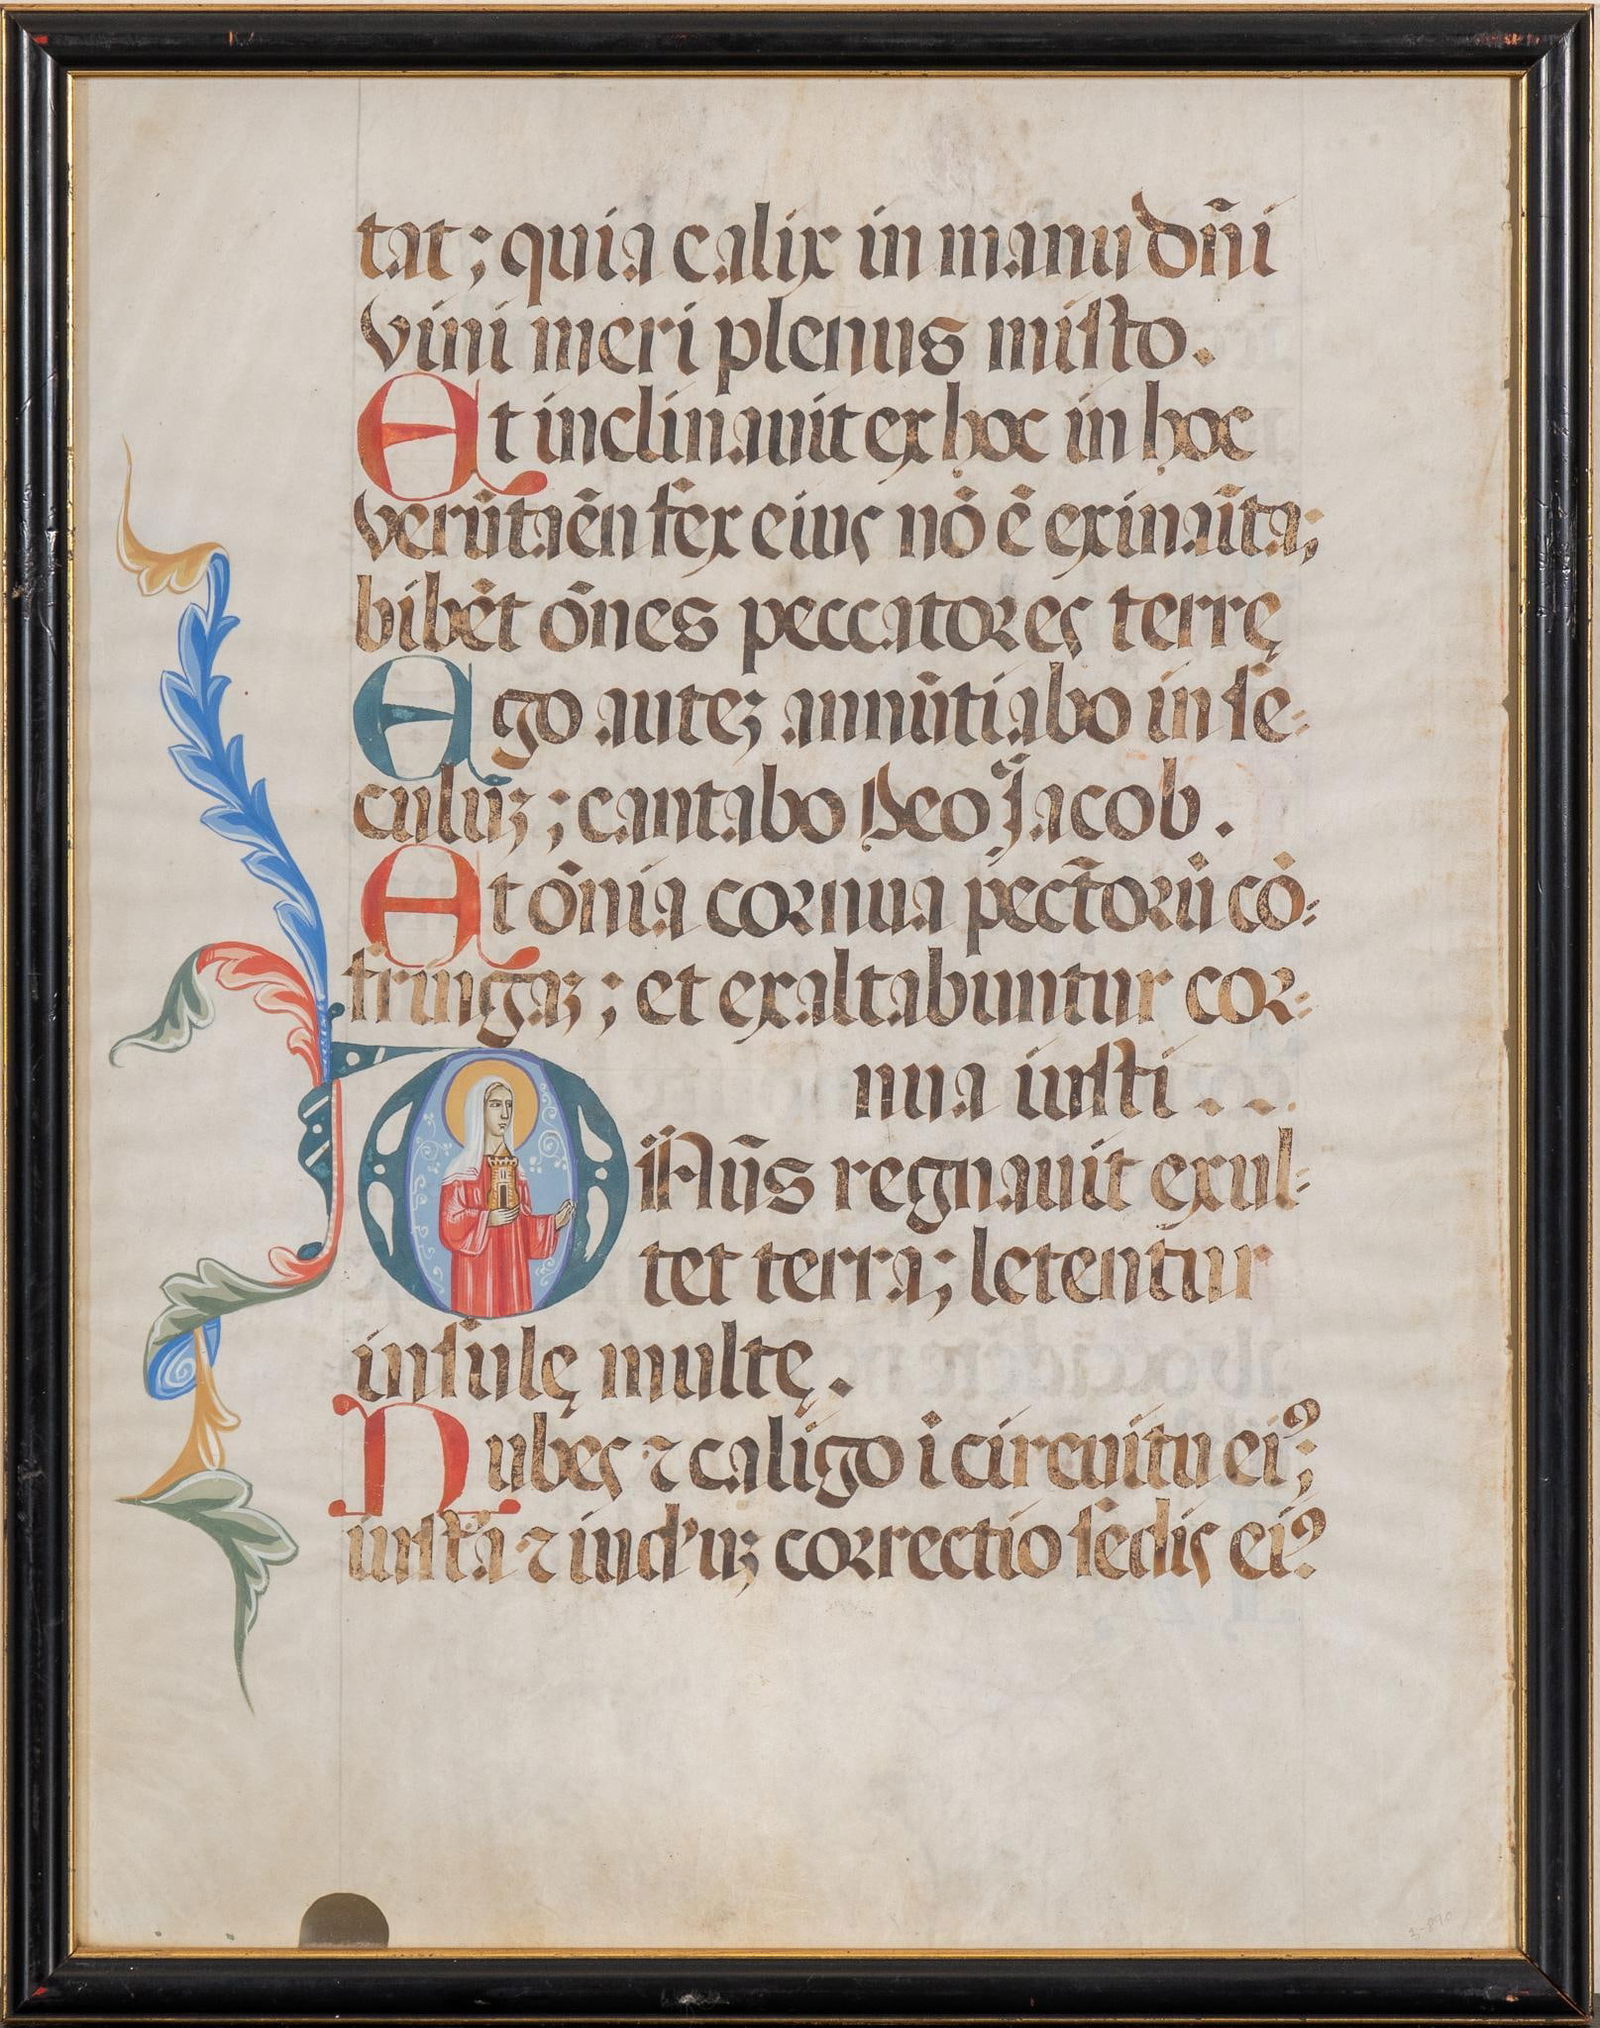 tat; quia calix in manu dñi
vini meri plenus misto.
Et inclinauit ex hoc in hoc
verūtaēn fex eius nō ē exinaīta;
bibēt ōnes peccatores terrę
Ego auteʒ annūtiabo in se=
culūʒ; cantabo Deo Jacob.
Et ōnia cornua pecto̅rū cō=
fringaʒ; et exaltabuntur cor=
nua iusti...
Dñūs regnauit exul=
tet terra; letentur
insulę multę.
Nubes ⁊ caligo ī circuitu ei⁹;
iustᷓa ⁊ iud'uʒ correctio sedis ei⁹